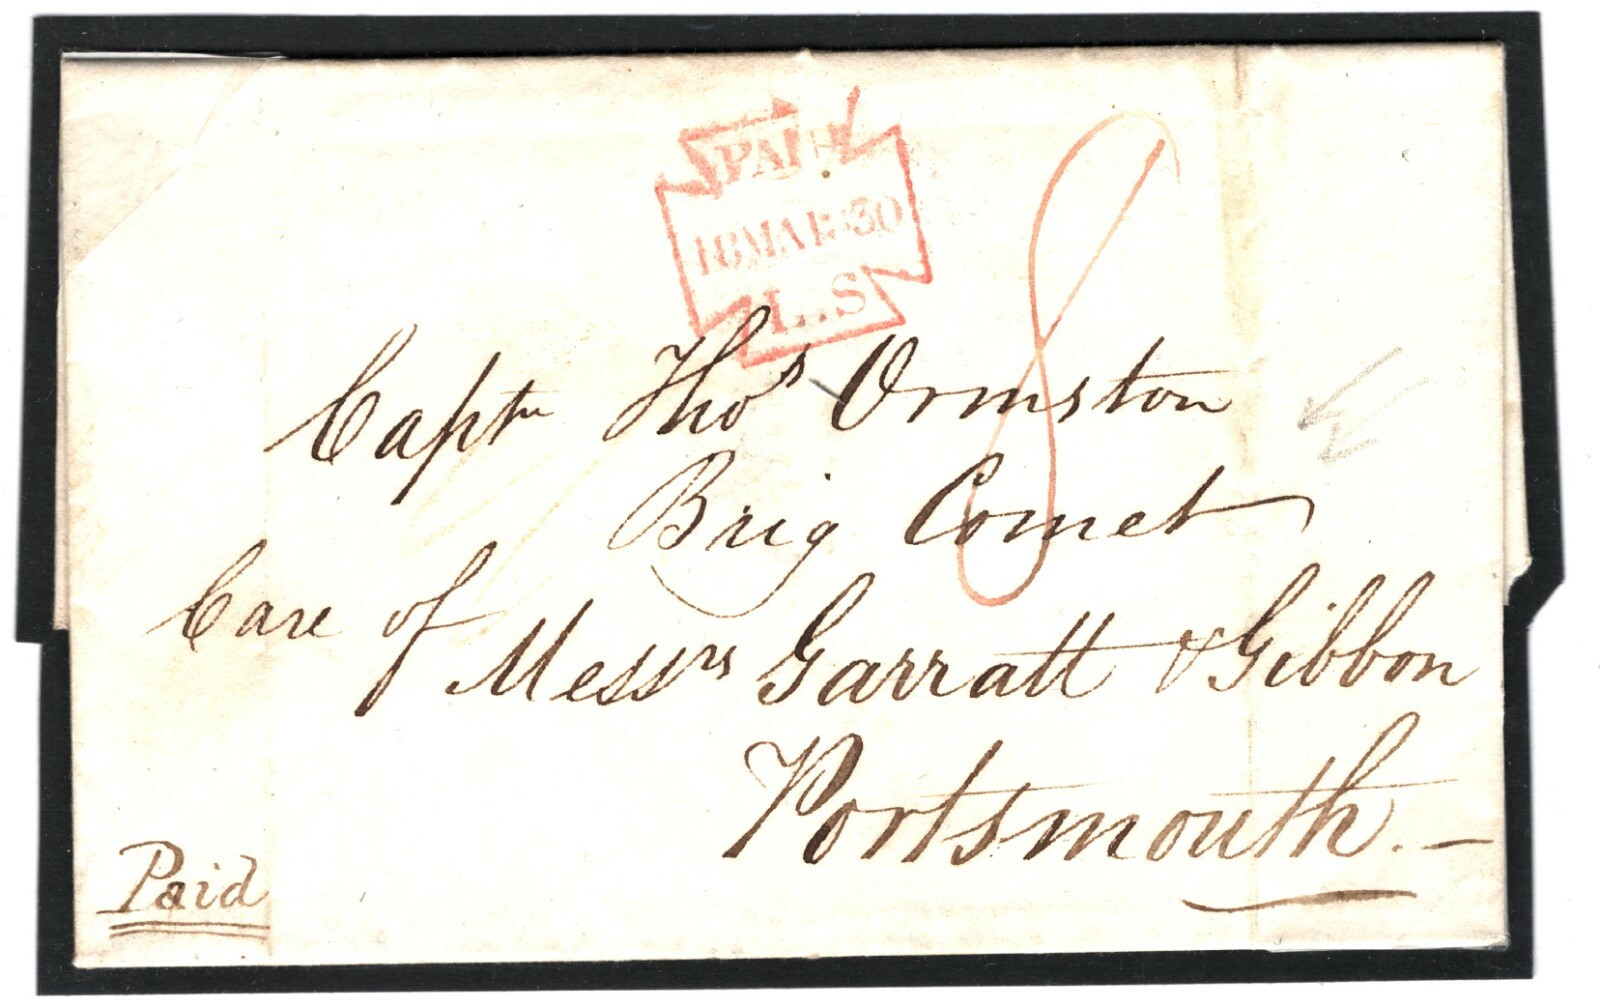 PAID
16MAR.30
L.S
8
Captn Thos Ormston
Brig Comet
Care of
Messrs Garratt & Gibbon
Portsmouth.—
Paid